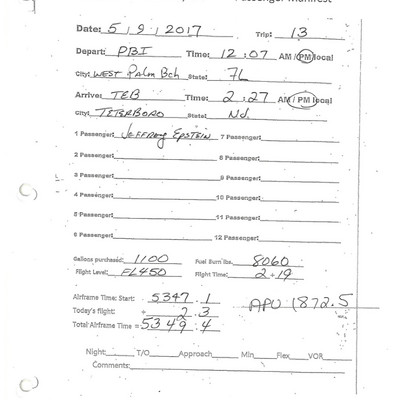 Passenger Manifest
Date: 5/9/2017 Trip: 13
Depart: PBI Time: 12:07 AM/PM local
City: WEST Palm Bch State: FL
Arrive: TEB Time: 2:27 AM/PM local
City: TETERBORO State: NJ
1 Passenger: JEFFREY EPSTEIN 7 Passenger:
2 Passenger: 8 Passenger:
3 Passenger: 9 Passenger:
4 Passenger: 10 Passenger:
5 Passenger: 11 Passenger:
6 Passenger: 12 Passenger:
Gallons purchased: 1100 Fuel Burn lbs. 8060
Flight Level: FL450 Flight Time: 2+19
Airframe Time: Start: 5347.1 APU 1872.5
Today's flight: + 2.3
Total Airframe Time = 5349.4
Night: T/O Approach Min Flex VOR
Comments: